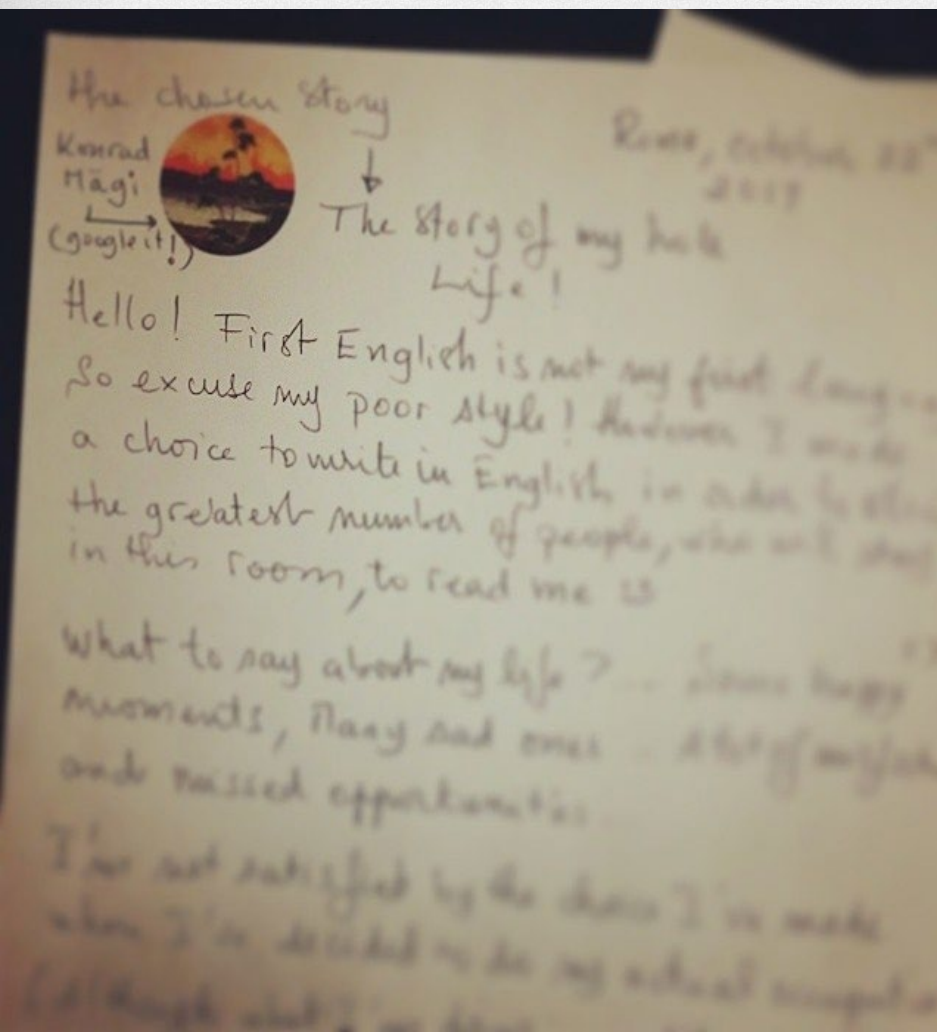 the chosen story
Rome, october 22
Konrad
Mägi
(google it!)
The story of my hole
Life!
Hello! First English is not my first
So excuse my poor style! However I made
a choice to write in English in order to
the greatest number of people, who will
in this room, to read me
What to say about my life? ... Some happy
moments, Many sad ones ... A lot of
and missed opportunities...
I'm not satisfied by the choice I've made
when I've decided to do my actual
(Although what I'm